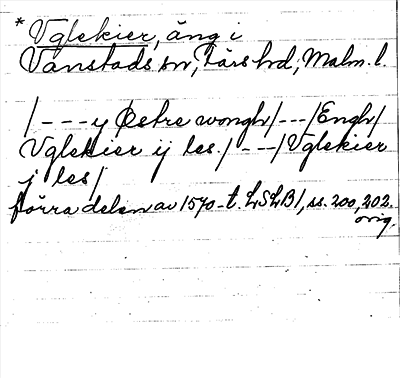 * Vglekier, äng i
Vanstads sn, Färs hd, Malm. l.
/---y Østre wongh/---/Engh/
Vglekier ij les./---/Vglekier
j les/
förra delen av 1570-t. LSLB1, ss. 200, 202.
orig.